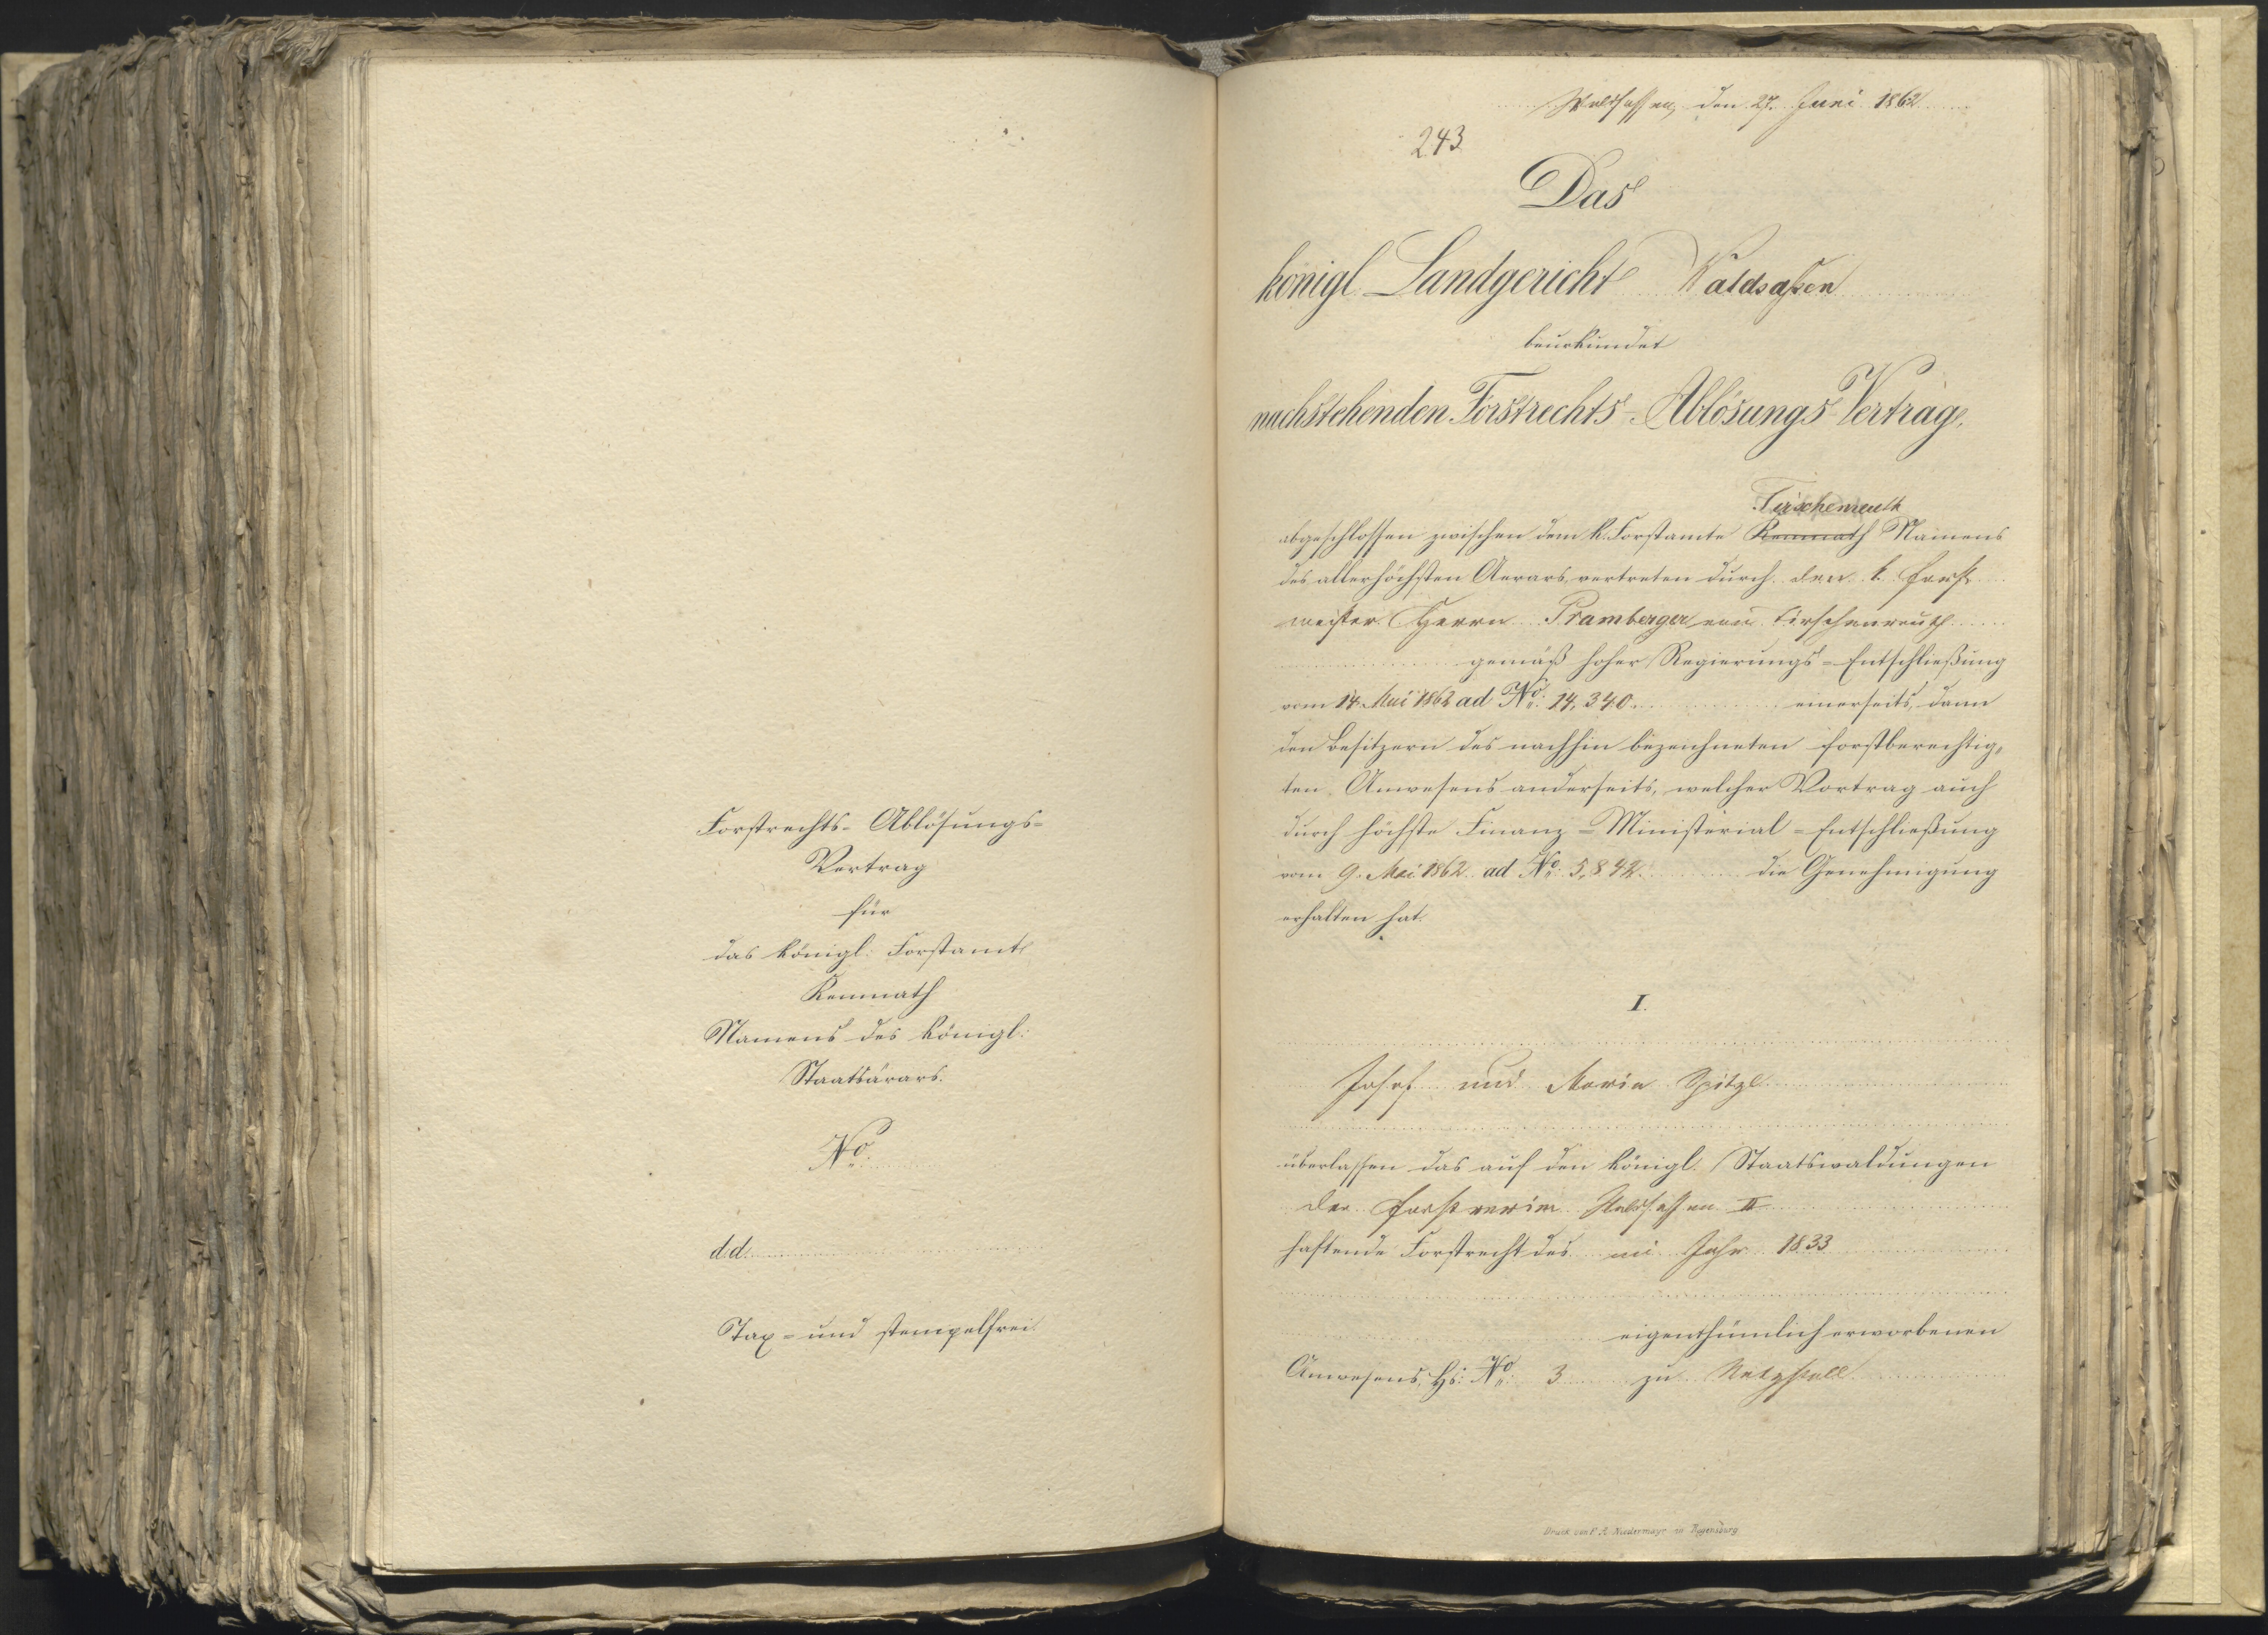 Forstrechts-Ablösungs-
Vertrag
für
das königl: Forstamt
Kemnath
Namens des königl:
Staatsärars.
No.
d.d.
Tax- und stempelfrei.
Waldsassen, den 27. Juni 1862
243
Das
königl. Landgericht Waldsaßen
beurkundet
nachstehenden Forstrechts-Ablösungs Vertrag,
Tirschenreuth
abgeschlossen zwischen dem k. Forstamte Kemnath Namens
des allerhöchsten Aerars, vertreten durch den k. Forst-
meister Herrn Pramberger von Tirschenreuth
gemäß hoher Regierungs-Entschließung
vom 14. Mai 1862 ad No. 14,340. einerseits, dann
den Besitzern des nachhin bezeichneten forstberechtig-
ten Anwesens anderseits, welcher Vertrag auch
durch höchste Finanz-Ministerial-Entschließung
vom 9. Mai 1862 ad No. 5,842. die Genehmigung
erhalten hat.
I.
Josef und Maria Spitzl
überlassen das auf den königl. Staatswaldungen
der Forstrevier Waldsassen II
haftende Forstrecht des im Jahr 1833
eigenthümlich erworbenen
Anwesens, Hs. No. 3 zu Netzstall
Druck von F. A. Niedermayr in Regensburg